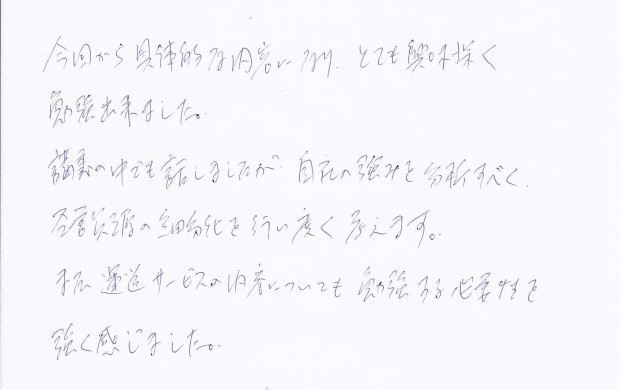 今回から具体的な内容になり、とても興味深く
勉強出来ました。
講義の中でも話しましたが、自社の強みを分析すべく、
経営資源の細分化を行い度く考えます。
運送サービスの内容についても勉強する必要性を
強く感じました。